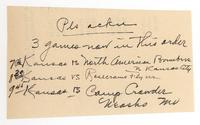 Pls ackn
3 games now in this order
7th Kansas vs North American Bombers
in Kansas City
8 Kansas vs Rockhurst
9th Kansas vs Camp Crowder
Neosho Mo